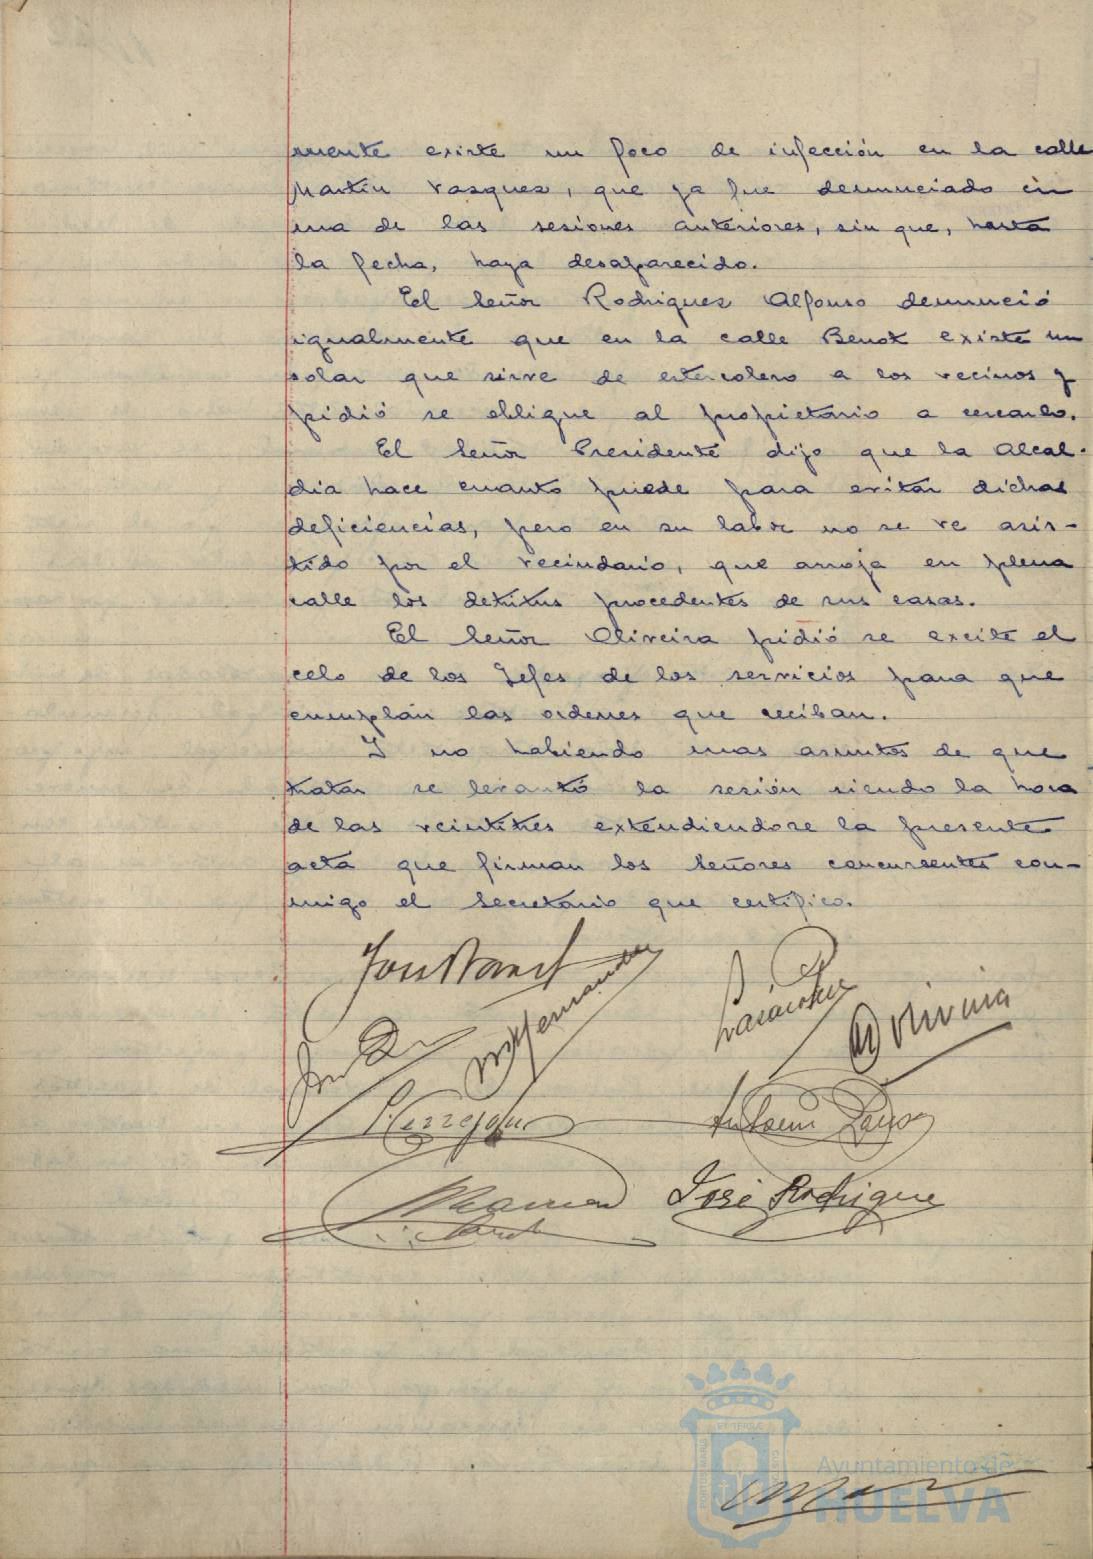 mente existe un foco de infección en la calle
Martín Vasquez, que ya fue denunciado en
una de las sesiones anteriores, sin que, hasta
la fecha, haya desaparecido.
El Señor Rodriguez Alfonso denunció
igualmente que en la calle Benot existe un
solar que sirve de estercolero a los vecinos y
pidió se obligue al propietario a cercarlo.
El Señor Presidente dijo que la Alcal-
dia hace cuanto puede para evitar dichas
deficiencias, pero en su labor no se ve asis-
tido por el vecindario, que arroja en plena
calle los detritus procedentes de sus casas.
El Señor Oliveira pidió se excite el
celo de los Jefes de los servicios para que
cumplan las ordenes que reciban.
Y no habiendo mas asuntos de que
tratar se levantó la sesión siendo la hora
de las veintitres extendiendose la presente
acta que firman los Señores concurrentes con-
migo el Secretario que certifico.
Fernandez
Oliveira
Antonio
José Rodrigue
PORTUS MARIS
Ayuntamiento de
HUELVA